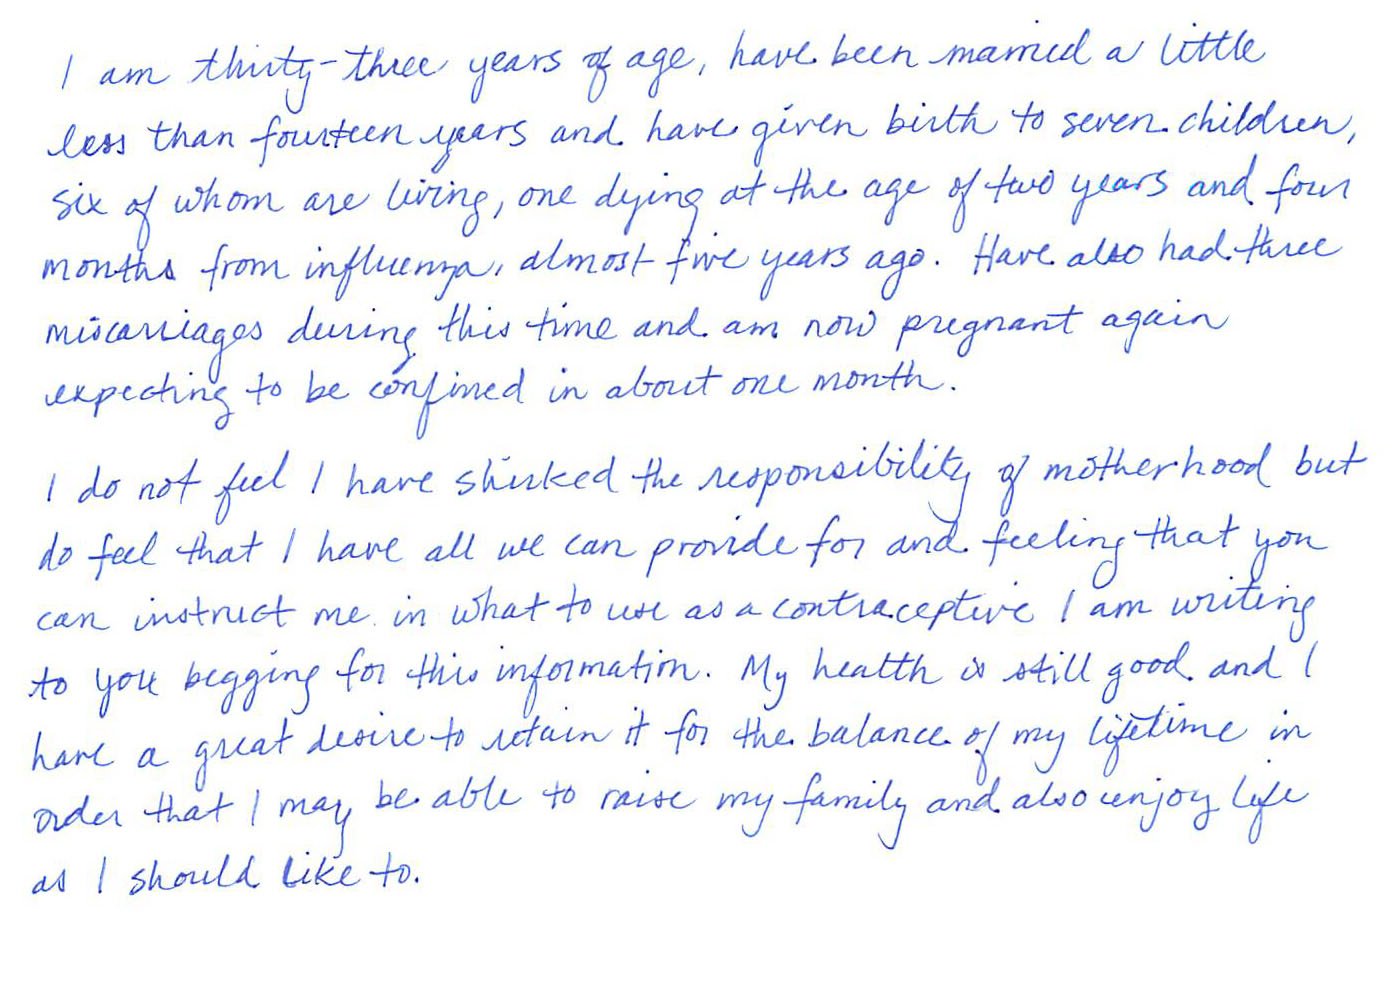 I am thirty-three years of age, have been married a little
less than fourteen years and have given birth to seven children,
six of whom are living, one dying at the age of two years and four
months from influenza, almost five years ago. Have also had three
miscarriages during this time and am now pregnant again
expecting to be confined in about one month.
I do not feel I have shirked the responsibility of motherhood but
do feel that I have all we can provide for and feeling that you
can instruct me in what to use as a contraceptive I am writing
to you begging for this information. My health is still good and I
have a great desire to retain it for the balance of my lifetime in
order that I may be able to raise my family and also enjoy life
as I should like to.